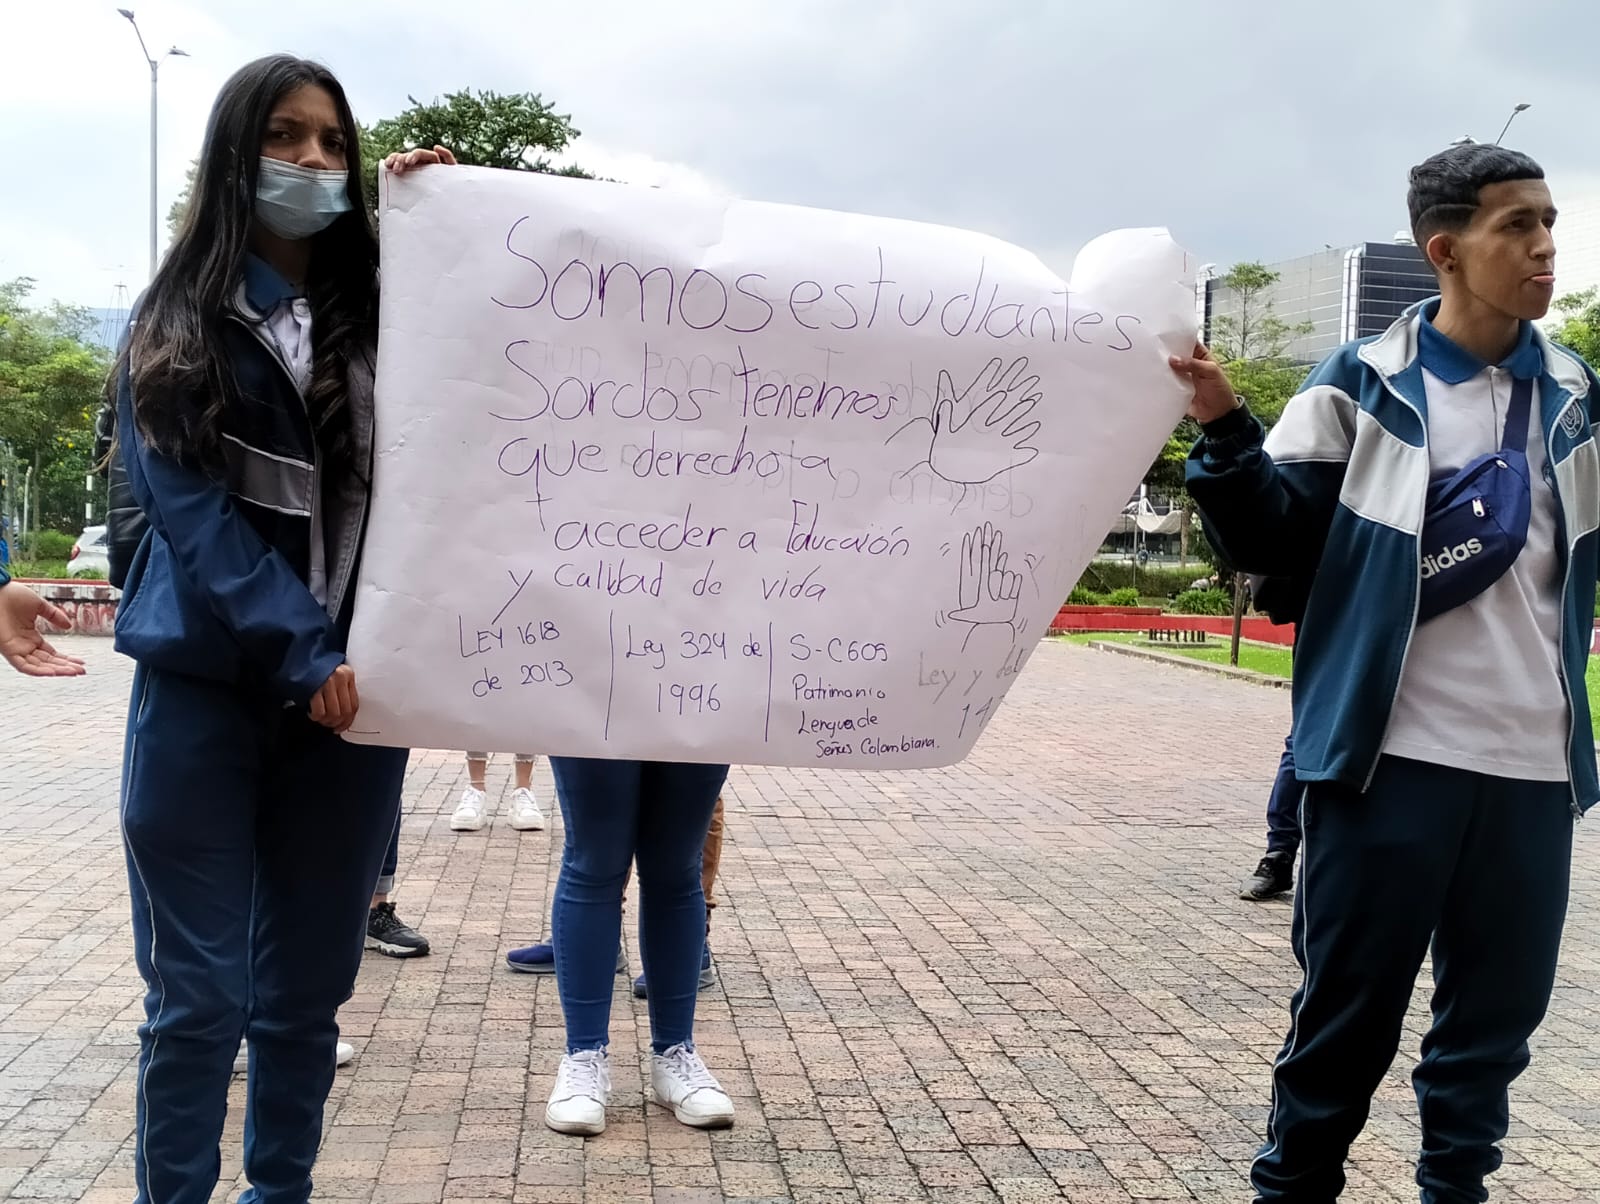 Somos estudiantes
Sordos tenemos
que derecho a
acceder a Educación
y calidad de vida
LEY 1618
de 2013
Ley 324 de
1996
S-C605
Patrimonio
Lengua de
Señas Colombiana.
Ley y
adidas